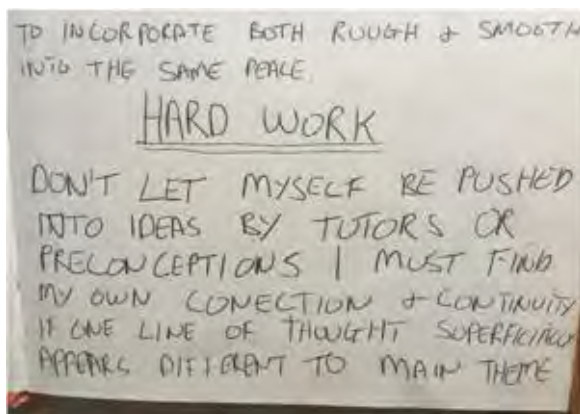 TO INCORPORATE BOTH ROUGH & SMOOTH
INTO THE SAME PEACE.
HARD WORK
DON'T LET MYSELF BE PUSHED
INTO IDEAS BY TUTORS OR
PRECONCEPTIONS I MUST FIND
MY OWN CONECTION & CONTINUITY
IF ONE LINE OF THOUGHT
APPEARS DIFFERENT TO MAIN THEME